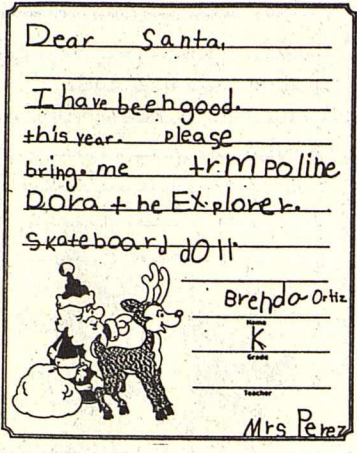 Dear Santa,
I have been good.
this year. please
bring. me tr.m poline
Dora the EXplorer.
skateboard doll.
Brenda Ortiz
Name
K
Grade
Teacher
Mrs Perez